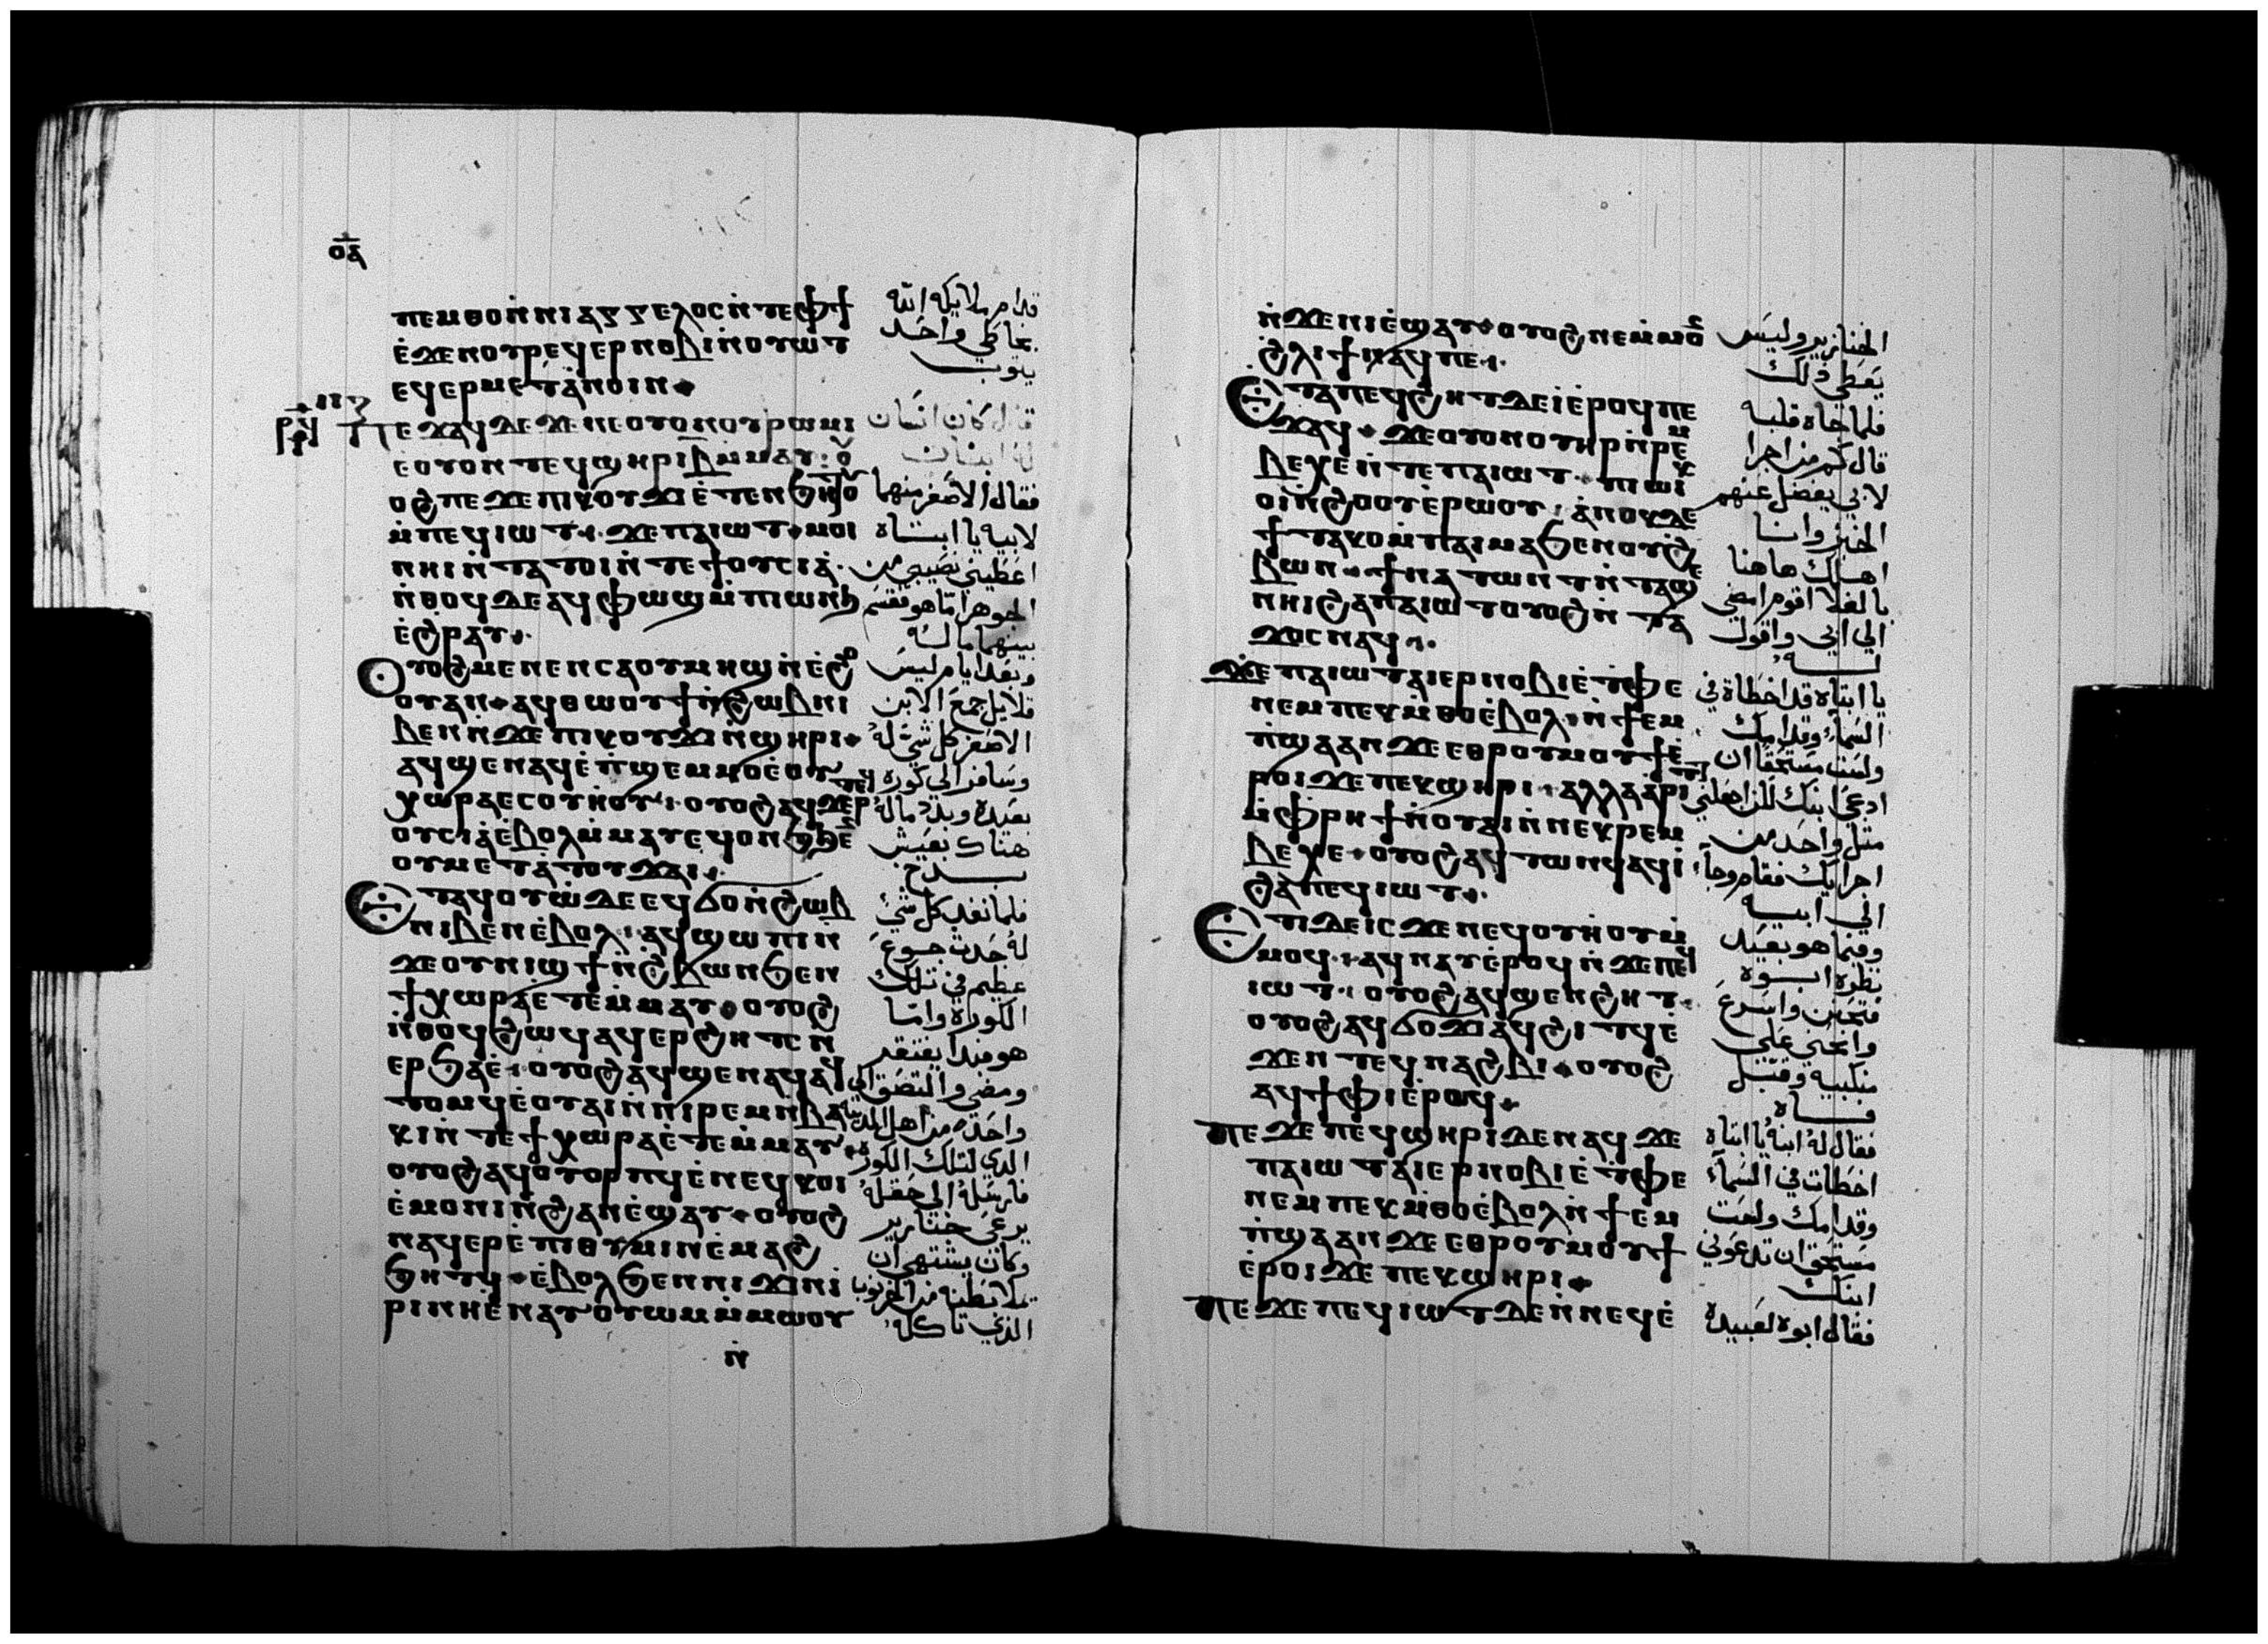 ⲟⲁ
ⲡⲉⲙⲑⲟ ⲛ̀ⲛⲓⲁⲅⲅⲉⲗⲟⲥ ⲛ̀ⲧⲉ ⲫϯ
ⲉ̀ϫⲉⲛ ⲟⲩⲣⲉϥⲉⲣⲛⲟⲃⲓ ⲛ̀ⲟⲩⲱⲧ
ⲉϥⲉⲣⲙⲉⲧⲁⲛⲟⲓⲛ
ⲡⲉϫⲁϥ ⲇⲉ ϫⲉ ⲛⲉ ⲟⲩⲟⲛ ⲟⲩⲣⲱⲙⲓ
ⲉⲟⲩⲟⲛ ⲧⲉϥ ϣⲏⲣⲓ ⲃ ⲙ̀ⲙⲁⲩ ⲟⲩ
ⲟϩ ⲡⲉϫⲉ ⲡⲓⲕⲟⲩϫⲓ ⲉ̀ⲧⲉⲛϧⲏⲧⲟⲩ
ⲙ̀ⲡⲉϥⲓⲱⲧ ϫⲉ ⲡⲁⲓⲱⲧ ⲙⲟⲓ
ⲛⲏⲓ ⲛ̀ⲧⲁⲧⲟⲓ ⲛ̀ⲧⲉ ϯⲟⲩⲥⲓⲁ
ⲛ̀ⲑⲟϥ ⲇⲉ ⲁϥⲫⲱϣ ⲙ̀ⲡⲓⲱⲛϧ
ⲉ̀ϩⲣⲁⲩ
ⲟⲩⲟϩ ⲙⲉⲛⲉⲛⲥⲁ ⲟⲩⲙⲏϣ ⲛ̀ⲉ̀ϩⲟ
ⲟⲩ ⲁⲛ ⲁϥⲑⲱⲟⲩϯ ⲛ̀ϩⲱⲃ ⲛⲓ
ⲃⲉⲛ ⲛ̀ϫⲉ ⲡⲓⲕⲟⲩϫⲓ ⲛ̀ϣⲏⲣⲓ
ⲁϥϣⲉⲛⲁϥ ⲉ̀ⲡ̀ϣⲉⲙⲙⲟ ⲉ̀ⲟⲩ
ⲭⲱⲣⲁ ⲉⲥⲟⲩⲏⲟⲩ ⲟⲩⲟϩ ⲁϥϫⲉⲣ ⲧⲉϥ
ⲟⲩⲥⲓⲁ ⲉ̀ⲃⲟⲗ ⲙ̀ⲙⲁⲩ ⲉϥⲟⲛϧ ϧⲉⲛ
ⲟⲩⲙⲉⲧⲁⲧⲟⲩϫⲁⲓ
ⲉⲧⲁϥⲟⲩⲱ ⲇⲉ ⲉϥϭⲟ ⲛ̀ϩⲱⲃ
ⲛⲓⲃⲉⲛ ⲉ̀ⲃⲟⲗ ⲁϥϣⲱⲡⲓ ⲛ̀
ϫⲉ ⲟⲩⲛⲓϣϯ ⲛ̀ϩⲃⲱⲛ ϧⲉⲛ
ϯⲭⲱⲣⲁ ⲉⲧⲉⲙⲙⲁⲩ ⲟⲩⲟϩ
ⲛ̀ⲑⲟϥ ϩⲱϥ ⲁϥⲉⲣϩⲏⲧⲥ ⲛ̀
ⲉⲣϧⲁⲉ̀ ⲟⲩⲟϩ ⲁϥϣⲉⲛⲁϥ ⲁϥ
ⲧⲟⲙϥ ⲉ̀ⲟⲩⲁⲓ ⲛ̀ⲛⲓⲣⲉⲙⲛ̀ⲃⲁ
ⲕⲓ ⲛ̀ⲧⲉ ϯⲭⲱⲣⲁ ⲉ̀ⲧⲉⲙ̀ⲙⲁⲩ
ⲟⲩⲟϩ ⲁϥⲟⲩⲟⲣⲡϥ ⲉ̀ⲛⲉϥⲕⲟⲓ
ⲉ̀ⲙⲟⲛⲓ ⲛ̀ϩⲁⲛⲉ̀ϣⲁⲩ ⲟⲩⲟϩ
ⲛⲁϥⲉⲣⲉ̀ⲡⲓⲑⲩⲙⲓⲛ ⲉ̀ⲙⲁϩ
ϧⲏⲧϥ ⲉ̀ⲃⲟⲗϧⲉⲛ ⲛⲓϫⲓⲛⲓ̀
ⲣⲓ ⲛⲏ ⲉ̀ⲛⲁⲩⲟⲩⲱⲙ ⲙ̀ⲙⲱⲟⲩ
ⲛ̀
قدام ملايكه الله
بخاطي واحد
يتوب
قال كان انسان
له ابنان
فقال الاصغر منهما
لابيه يا ابتاه
اعطيني نصيبي من
الجوهر اما هو فقسم
بينهما ماله
وبعد ايام ليس
قلايل جمع الابن
الاصغر كل شي له
وسافر الى كوره
بعيده وبدد ماله
هناك بعيش
بذخ
فلما نفد كل شي
له حدث جوع
عظيم في تلك
الكوره واما
هو فبدا يفتقد
ومضى والتصق الى
واحد من اهل المدينة
الذي لتلك الكوره
فارسله الى حقله
يرعى خنازير
وكان يشتهي ان
يملا بطنه من الخرنوب
الذي تاكله
ⲛ̀ϫⲉ ⲛⲓⲉ̀ϣⲁⲩ ⲟⲩⲟϩ ⲛⲉ ⲙ̀ⲙⲟⲛ
ϩⲗⲓ ϯ ⲛⲁϥ ⲡⲉ
ⲉⲧⲁ ⲡⲉϥϩⲏⲧ ⲇⲉ ⲓ̀ ⲉ̀ⲣⲟϥ ⲡⲉ
ϫⲁϥ ϫⲉ ⲟⲩⲟⲛ ⲟⲩⲏⲣ ⲛ̀ⲣⲉⲙ
ⲃⲉⲭⲉ ⲛ̀ⲧⲉ ⲡⲁⲓⲱⲧ ⲡⲓⲱⲓⲕ
ⲟⲓ ⲛ̀ϩⲟⲩⲟ ⲉ̀ⲣⲱⲟⲩ ⲁ̀ⲛⲟⲕ ⲇⲉ
ϯⲧⲁⲕⲟ ⲙ̀ⲡⲁⲓⲙⲁ ϧⲉⲛ ⲟⲩϩ
ⲃⲱⲛ ϯⲛⲁⲧⲱⲛⲧ ⲛ̀ⲧⲁϣⲉ
ⲛⲏⲓ ϩⲁ ⲡⲁⲓⲱⲧ ⲟⲩⲟϩ ⲛ̀ⲧⲁ
ϫⲟⲥ ⲛⲁϥ
ϫⲉ ⲡⲁⲓⲱⲧ ⲁⲓⲉⲣⲛⲟⲃⲓ ⲉ̀ⲧⲫⲉ
ⲛⲉⲙ ⲡⲉⲕⲙ̀ⲑⲟ ⲉ̀ⲃⲟⲗ ⲛ̀ϯⲉⲙ
ⲡ̀ϣⲁ ⲁⲛ ϫⲉ ⲉⲑⲣⲟⲩⲙⲟⲩϯ ⲉ̀
ⲣⲟⲓ ϫⲉ ⲡⲉⲕϣⲏⲣⲓ ⲁⲗⲗⲁ ⲁⲣⲓⲧ
ⲙ̀ⲫⲣⲏϯ ⲛ̀ⲟⲩⲁⲓ ⲛ̀ⲛⲉⲕⲣⲉⲙ
ⲃⲉⲭⲉ ⲟⲩⲟϩ ⲁϥⲧⲱⲛϥ ⲁϥⲓ̀
ϩⲁ ⲡⲉϥⲓⲱⲧ
ⲉⲧⲓ ⲇⲉ ⲓⲥϫⲉⲛ ⲉϥⲟⲩⲏⲟⲩ ⲙ̀
ⲙⲟϥ ⲁϥⲛⲁⲩ ⲉ̀ⲣⲟϥ ⲛ̀ϫⲉ ⲡⲉϥ
ⲓⲱⲧ ⲟⲩⲟϩ ⲁϥϣⲉⲛϩⲏⲧ
ⲟⲩⲟϩ ⲁϥϭⲟϫⲓ ⲁϥϩⲓⲧϥ ⲉ̀
ϫⲉⲛ ⲧⲉϥⲛⲁϩⲃⲓ ⲟⲩⲟϩ
ⲁϥϯⲫⲓ ⲉ̀ⲣⲱϥ
ⲡⲉϫⲉ ⲡⲉϥϣⲏⲣⲓ ⲇⲉ ⲛⲁϥ ϫⲉ
ⲡⲁⲓⲱⲧ ⲁⲓⲉⲣⲛⲟⲃⲓ ⲉ̀ⲧⲫⲉ
ⲛⲉⲙ ⲡⲉⲕⲙ̀ⲑⲟ ⲉ̀ⲃⲟⲗ ⲛ̀ϯⲉⲙ
ⲡ̀ϣⲁ ⲁⲛ ϫⲉ ⲉⲑⲣⲟⲩⲙⲟⲩϯ
ⲉ̀ⲣⲟⲓ ϫⲉ ⲡⲉⲕϣⲏⲣⲓ
ⲡⲉϫⲉ ⲡⲉϥⲓⲱⲧ ⲇⲉ ⲛ̀ⲛⲉϥⲉ̀
الخنازير وليس
يعطى ذلك
فلما جاه قلبه
قال كم من اجرا
لابي يفضل عنهم
الخبز وانا
اهلك هاهنا
بالغلا اقوم امضي
الى ابي واقول
له
يا ابتاه قد اخطاة في
السماء وقدامك
ولست مستحقا ان
ادعى ابنك لكن اجعلني
مثل واحد من
اجرايك فقام وجا
الى ابيه
وفيما هو بعيد
نظره ابوه
فتحنن واسرع
وانحنى على
منكبيه وقبل
فاه
فقال له ابنه يا ابتاه
اخطات في السماء
وقدامك ولست
مستحق ان تدعوني
ابنك
فقال ابوه لعبيده